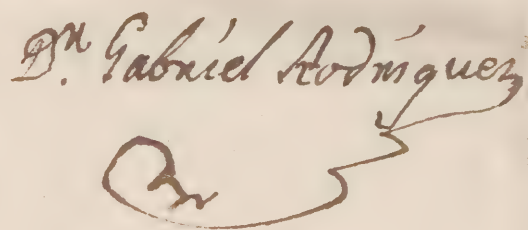 Dn. Gabriel Rodriguez